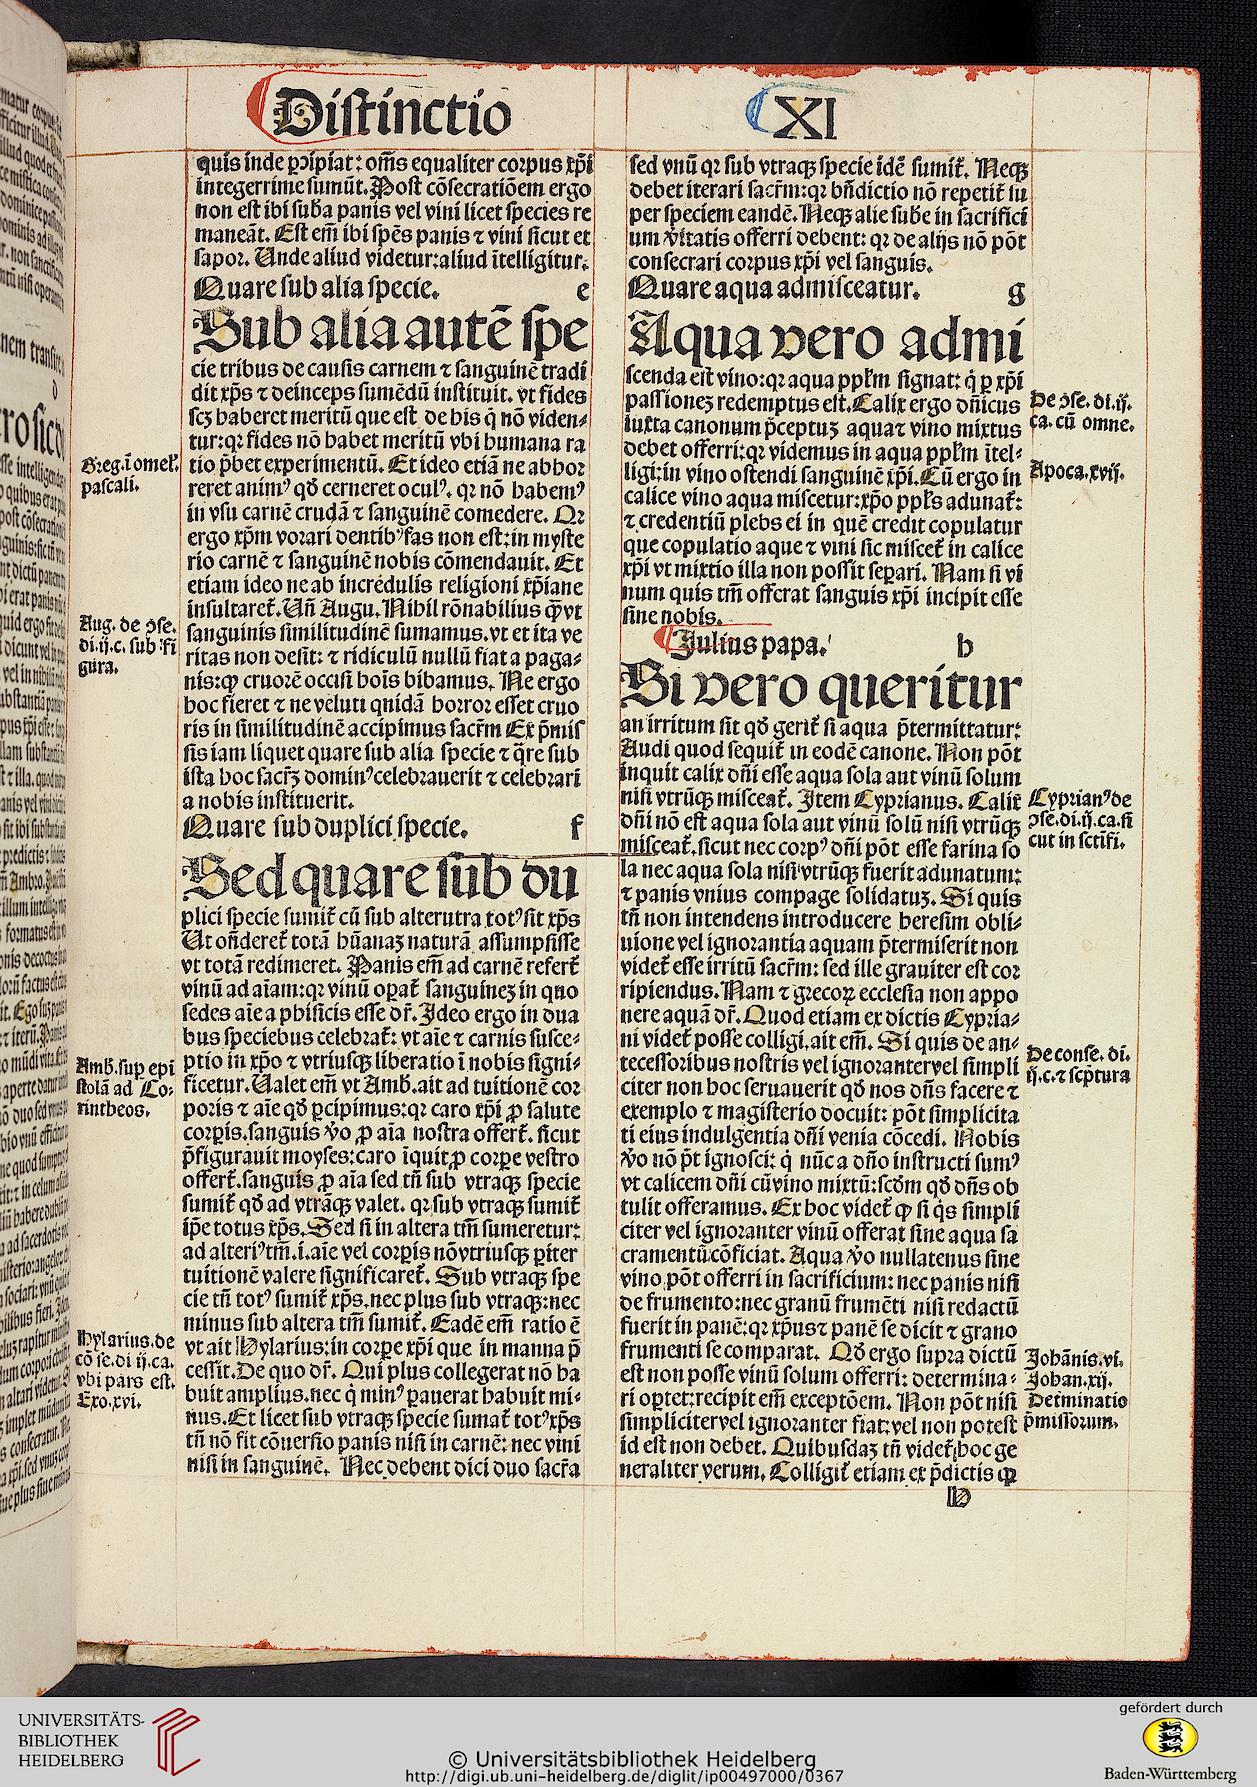 Distinctio XI
quis inde ꝑcipiat: om̃s equaliter corpus xp̃i
integerrime sumũt. Post cõsecratiõem ergo
non est ibi sub̃a panis vel vini licet species re
maneãt. Est em̃ ibi spẽs panis ⁊ vini sicut et
sapor. Unde aliud videtur: aliud ĩtelligitur.
Quare sub alia specie. e
Sub alia autẽ spe
cie tribus de causis carnem ⁊ sanguinẽ tradi
dit xp̃s ⁊ deinceps sumẽdũ instituit. vt fides
scꝫ haberet meritũ que est de his q̃ nõ viden⸗
tur: qꝛ fides nõ habet meritũ vbi humana ra
tio p̃bet experimentũ. Et ideo etiã ne abhor
reret animꝰ qd̃ cerneret oculꝰ. qꝛ nõ habemꝰ
in vsu carnẽ crudã ⁊ sanguinẽ comedere. Qꝛ
ergo xp̃m vorari dentibꝰ fas non est: in myste
rio carnẽ ⁊ sanguinẽ nobis cõmendauit. Et
etiam ideo ne ab incredulis religioni xp̃iane
insultaret̃. Uñ Augu. Nihil rõnabilius qꝫ vt
sanguinis similitudinẽ sumamus. vt et ita ve
ritas non desit: ⁊ ridiculũ nullũ fiat a paga⸗
nis: ꝙ cruorẽ occisi hoĩs bibamus. Ne ergo
hoc fieret ⁊ ne veluti quidã horror esset cruo
ris in similitudinẽ accipimus sacr̃m Ex p̃mis
sis iam liquet quare sub alia specie ⁊ q̃re sub
ista hoc sacr̃ꝫ dominꝰ celebrauerit ⁊ celebrari
a nobis instituerit.
Quare sub duplici specie. f
Sed quare sub du
plici specie sumit̃ cũ sub alterutra totꝰ sit xp̃s
Ut oñderet̃ totã hũanaꝫ naturã assumpsisse
vt totã redimeret. Panis em̃ ad carnẽ refert̃
vinũ ad aĩam: qꝛ vinũ oꝑat̃ sanguineꝫ in quo
sedes aĩe a phisicis esse dr̃. Ideo ergo in dua
bus speciebus celebrat̃: vt aĩe ⁊ carnis susce⸗
ptio in xp̃o ⁊ vtriusqꝫ liberatio ĩ nobis signi⸗
ficetur. Ualet em̃ vt Amb. ait ad tuitionẽ cor
poris ⁊ aĩe qd̃ ꝑcipimus: qꝛ caro xp̃i ꝓ salute
corꝑis. sanguis ṽo ꝓ aĩa nostra offert̃. sicut
p̃figurauit moyses: caro ĩquit ꝓ corꝑe vestro
offert̃. sanguis ꝓ aĩa sed tñ sub vtraqꝫ specie
sumit̃ qd̃ ad vtrãqꝫ valet. qꝛ sub vtraqꝫ sumit̃
ip̃e totus xp̃s. Sed si in altera tm̃ sumeretur:
ad alteriꝰ tm̃. i. aĩe vel corꝑis nõ vtriusqꝫ ꝑiter
tuitionẽ valere significaret̃. Sub vtraqꝫ spe
cie tñ totꝰ sumit̃ xp̃s. nec plus sub vtraqꝫ: nec
minus sub altera tm̃ sumit̃. Eadẽ em̃ ratio ẽ
vt ait Hylarius: in corꝑe xp̃i que in manna p̃
cessit. De quo dr̃. Qui plus collegerat nõ ha
buit amplius. nec q̃ minꝰ ꝑauerat habuit mi⸗
nus. Et licet sub vtraqꝫ specie sumat̃ totꝰ xp̃s
tñ nõ fit cõuersio panis nisi in carnẽ: nec vini
nisi in sanguinẽ. Nec debent dici duo sacr̃a
Greg. ĩ omel̃.
pascali.
Aug. de ꝯse.
di. ij. c. sub fi
gura.
Amb. sup epi
stolã ad Co⸗
rintheos.
Hylarius. de
cõse. di ij. ca.
vbi pars est.
Exo. xvi.
sed vnũ qꝛ sub vtraqꝫ specie idẽ sumit̃. Neqꝫ
debet iterari sacr̃m: qꝛ bñdictio nõ repetit̃ su
per speciem eandẽ. Neqꝫ alie sub̃e in sacrifici
um ṽitatis offerri debent: qꝛ de alijs nõ põt
consecrari corpus xp̃i vel sanguis.
Quare aqua admisceatur. g
Aqua vero admi
scenda est vino: qꝛ aqua ppl̃m signat: q̃ ꝑ xp̃i
passioneꝫ redemptus est. Calix ergo dñicus
iuxta canonum p̃ceptuꝫ aqua ⁊ vino mixtus
debet offerri: qꝛ videmus in aqua ppl̃m ĩtel⸗
ligi: in vino ostendi sanguinẽ xp̃i. Cũ ergo in
calice vino aqua miscetur: xp̃o ppl̃s adunat̃:
⁊ credentiũ plebs ei in quẽ credit copulatur
que copulatio aque ⁊ vini sic miscet̃ in calice
xp̃i vt mixtio illa non possit seꝑari. Nam si vi
num quis tm̃ offerat sanguis xp̃i incipit esse
sine nobis.
Julius papa. h
Si vero queritur
an irritum sit qd̃ gerit̃ si aqua p̃termittatur:
Audi quod sequit̃ in eodẽ canone. Non põt
inquit calix dñi esse aqua sola aut vinũ solum
nisi vtrũqꝫ misceat̃. Item Cyprianus. Calix
dñi nõ est aqua sola aut vinũ solũ nisi vtrũqꝫ
misceat̃. sicut nec corpꝰ dñi põt esse farina so
la nec aqua sola nisi vtrũqꝫ fuerit adunatum:
⁊ panis vnius compage solidatuꝫ. Si quis
tñ non intendens introducere heresim obli⸗
uione vel ignorantia aquam p̃termiserit non
videt̃ esse irritũ sacr̃m: sed ille grauiter est cor
ripiendus. Nam ⁊ grecoꝝ ecclesia non appo
nere aquã dr̃. Quod etiam ex dictis Cypria⸗
ni videt̃ posse colligi. ait em̃. Si quis de an⸗
tecessoribus nostris vel ignoranter vel simpli
citer non hoc seruauerit qd̃ nos dñs facere ⁊
exemplo ⁊ magisterio docuit: põt simplicita
ti eius indulgentia dñi venia cõcedi. Nobis
ṽo nõ p̃t ignosci: q̃ nũc a dño instructi sumꝰ
vt calicem dñi cũ vino mixtũ: scd̃m qd̃ dñs ob
tulit offeramus. Ex hoc videt̃ ꝙ si q̃s simpli
citer vel ignoranter vinũ offerat sine aqua sa
cramentũ cõficiat. Aqua ṽo nullatenus sine
vino põt offerri in sacrificium: nec panis nisi
de frumento: nec granũ frumẽti nisi redactũ
fuerit in panẽ: qꝛ xp̃us ⁊ panẽ se dicit ⁊ grano
frumenti se comparat. Qd̃ ergo supra dictũ
est non posse vinũ solum offerri: determina⸗
ri oꝑtet: recipit em̃ exceptõem. Non põt nisi
simpliciter vel ignoranter fiat: vel non potest
id est non debet. Quibusdaꝫ tñ videt̃ hoc ge
neraliter verum. Colligit̃ etiam ex p̃dictis ꝙ
H
De ꝯse. di. ij.
ca. cũ omne.
Apoca. xvij.
Cyprianꝰ de
ꝯse. di. ij. ca. si
cut in sctĩfi.
De conse. di.
ij. c. ⁊ scp̃tura
Johãnis. vi.
Johan. xij.
Det̃minatio
p̃missorum.
UNIVERSITÄTS-
BIBLIOTHEK
HEIDELBERG
© Universitätsbibliothek Heidelberg
http://digi.ub.uni-heidelberg.de/diglit/ip00497000/0367
gefördert durch
Baden-Württemberg